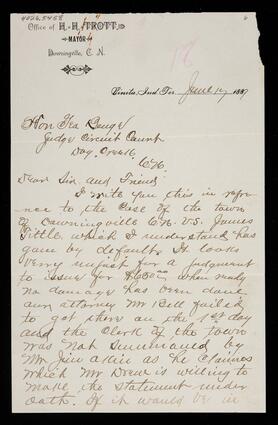 4026.5458
Office of H. H. TROTT,
MAYOR
Downingville, C. N.
18
6
Vinita, Ind Ter. June 14, 1889
Hon Tea
Judge Circuit Court
C.N.
Dear Sir and Friend
I write you this in refre
nce to the Case of the town
of Downingville C.N. V.S. James
Little, which I understand has
gone by default. It looks
verry unjust for a judgment
to issue for when realy
no damage has been done
our attorney Mr Bell failed
to get there on the 1st day
and the Clerk of the town
was not summoned by
Mr Jim as he claimes
which Mr Drew is willing to
make the statement under
oath. If it would be in